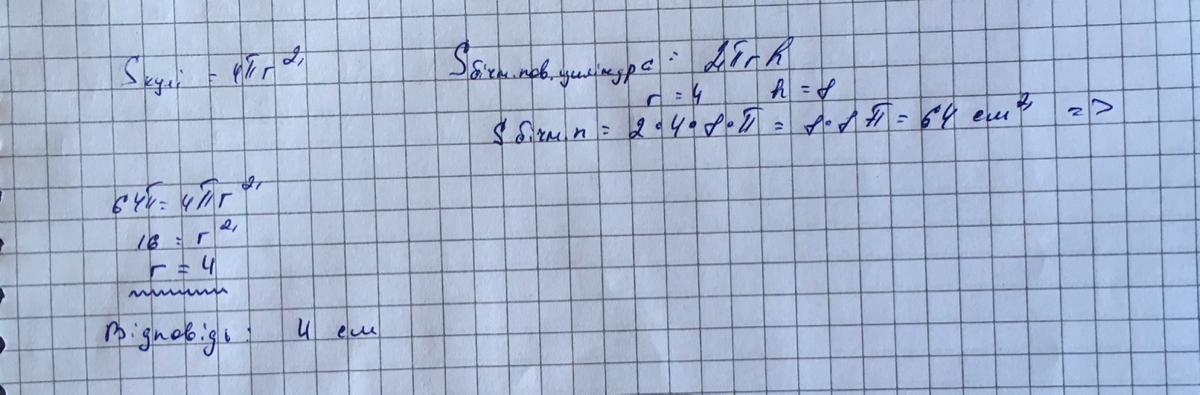 S кулі = 4πr²
S бічн.пов.циліндра = 2πrh
r = 4 h = 8
S бічн.п = 2•4•8•π = 8•8π = 64 см² =>
64π = 4πr²
16 = r²
r = 4
Відповідь: 4 см